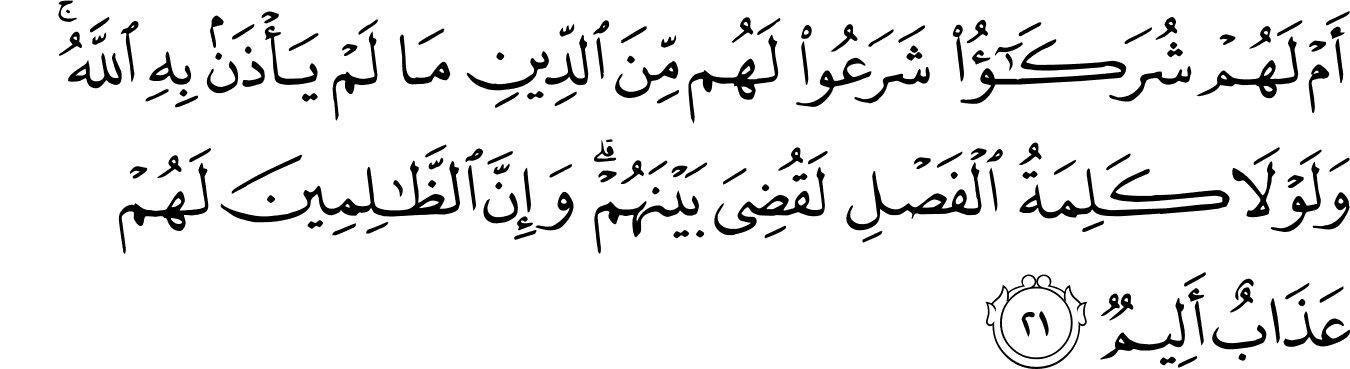 أَمْ لَهُمْ شُرَكَـٰٓؤُا۟ شَرَعُوا۟ لَهُم مِّنَ ٱلدِّينِ مَا لَمْ يَأْذَنۢ بِهِ ٱللَّهُ ۚ
وَلَوْلَا كَلِمَةُ ٱلْفَصْلِ لَقُضِىَ بَيْنَهُمْ ۗ وَإِنَّ ٱلظَّـٰلِمِينَ لَهُمْ
عَذَابٌ أَلِيمٌ ٢١